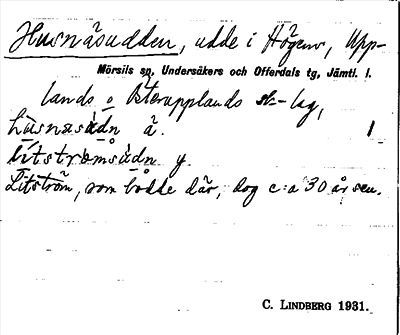 Husnäsudden, udde i Högen, Upp-
Mörsils sn, Undersåkers och Offerdals tg, Jämtl. l.
lands o Österupplands sk.-lag,
hùsnasúdn ä. 1
lítstrømsúdn y.
Litström, som bodde där, dog c:a 30 år sen.
C. LINDBERG 1931.